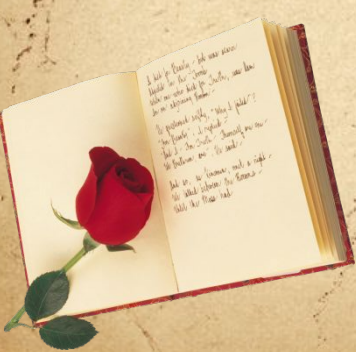 I died for Beauty - but was scarce
Adjusted in the Tomb
When one who died for Truth, was lain
In an adjoining Room -
He questioned softly, "Why I failed"?
"For Beauty", I replied -
"And I - for Truth - Themself are one -
We Brethren, are", He said -
And so, as Kinsmen, met a Night -
We talked between the Rooms -
Until the Moss had